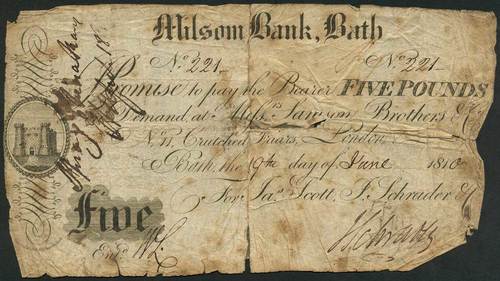 Milsom Bank, Bath
No. 221. No. 221.
Promise to pay the Bearer FIVE POUNDS
Demand, at Mess.rs Sampson Brothers & C
No. 11, Crutched Friars, London.
Bath, the 19th day of June 1810
For Ja.s Scott, J. Schrader &
Five
Ent.d
J Schrader